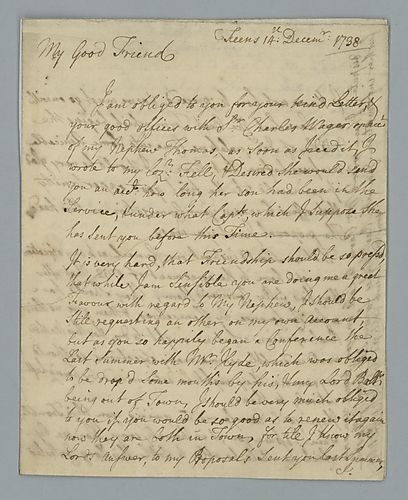 Steens 14th: Decemr. 1738
My Good Friend
I am obliged to you for your kind Letter, &
your good offices with Sr. Charles Wager
of my Nephew Thomas as soon as I
wrote to my Fell, & Desired she would send
you an acct. how long her son had been in the
Service, & under what Capts, which I suppose she
has sent you before this Time.
It is very hard, that Friendship should be so prest
that while I am sensible you are doing me a great
Favour with regard to My Nephew, I should be
still requesting an other on my own Account,
but as you so happiley began a Conference the
Last Summer with Mr. Hyde, which was obliged
to be drop'd some months by his, & my Lord Balt
being out of Town, I should be very much obliged
to you if you would be so good as to renew it again
now they are both in Town, for till I know my
Lords answer, to my Proposals sent you last summer,
I